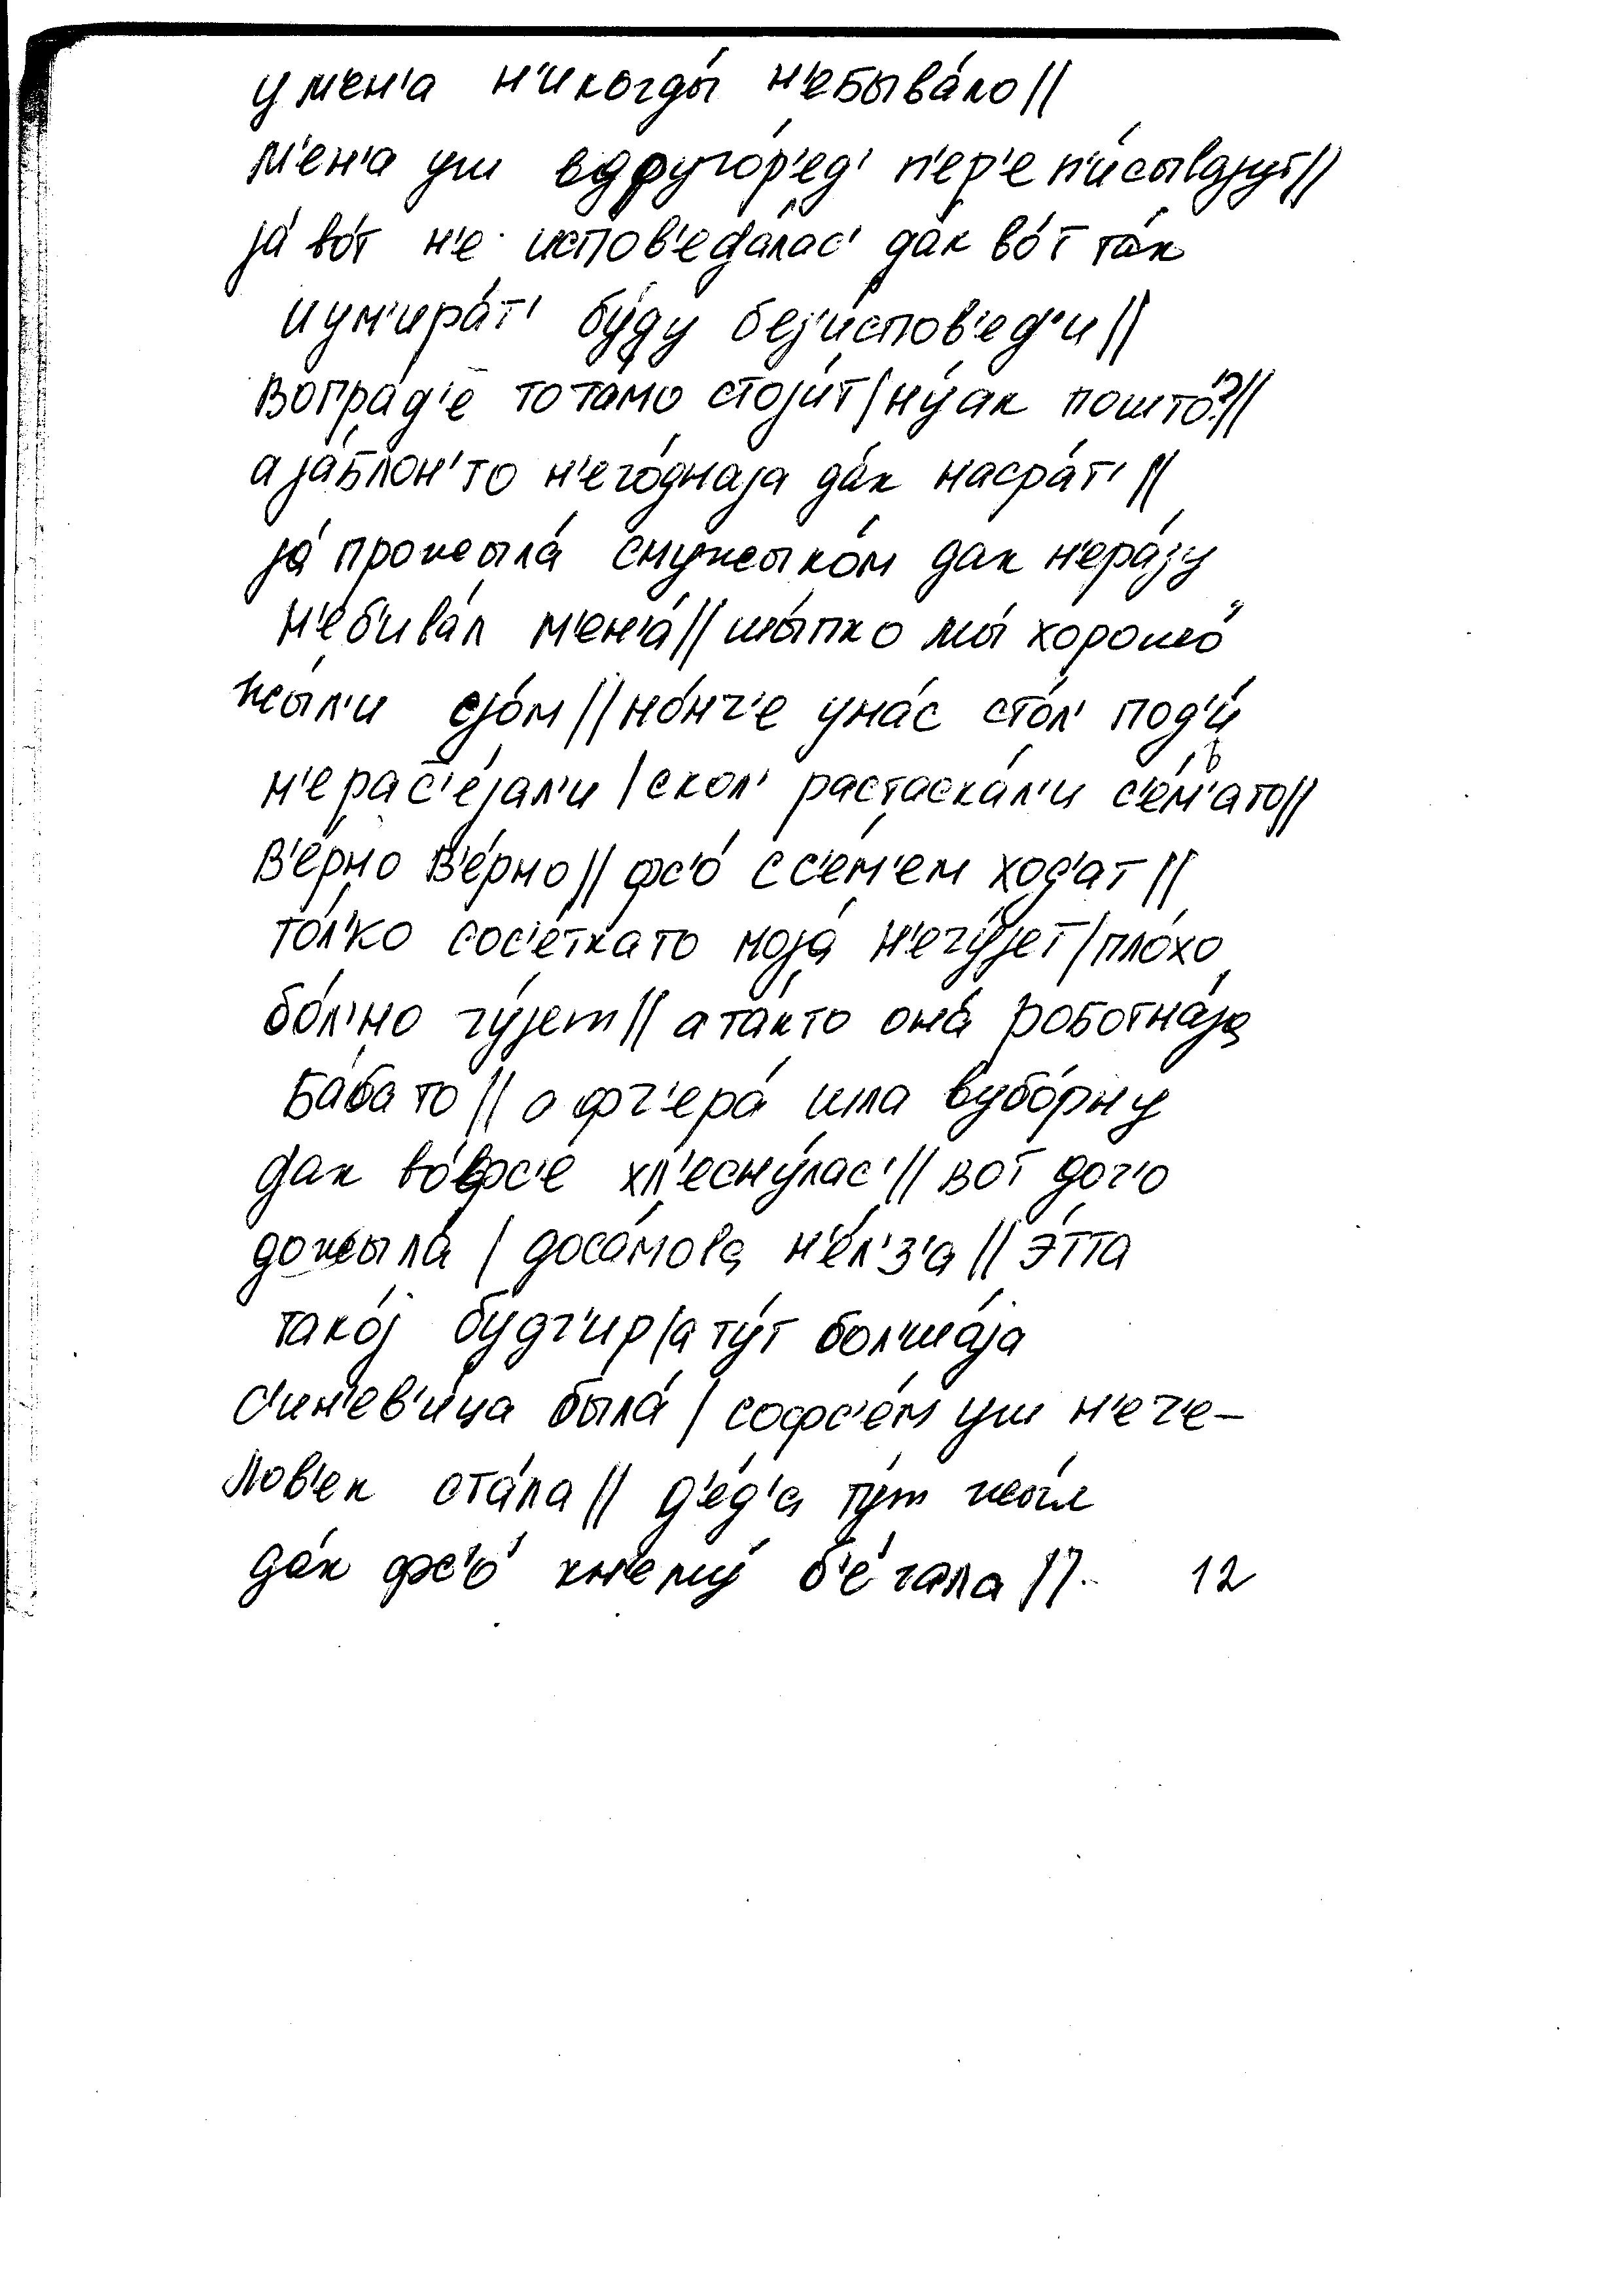 у мен'а н'икогды́ н'ебыва́ло //
м'ен'а уш вдругóр'ед' п'ер'еп'и́сывајут //
jа́ во́т н'е испов'еда́лас' да́к во́т та́к
иум'ира́т' бу́ду без'и́спов'ед'и //
вогра́д'е тота́мо стоjи́т / ну́ак пошто́? //
аjа́блон'то н'его́днаjа да́к насра́т' //
jа́ прожыла́ смужыко́м дак н'ера́зу
н'еб'ива́л м'ен'а́ // шы́пко мы́ хорошо́
жы́л'и сjо́м // но́нч'е уна́с сто́л' под'и́
н'ерас'е́jал'и / скол' растаска́л'и с'е́м'ато //
в'е́рно в'е́рно // фс'о́ сс'е́м'ем ход'ат //
то́л'ко сос'е́ткато моjа́ н'ечу́jет / пло́хо
бо́л'но чу́jет // ата́кто она́ роботна́jа
ба́бато // офч'ера́ шла вубо́рну
дак во́фс'е хл'есну́лас' // вот дочо
дожыла́ / досо́мова н'е́л'з'а // э́тта
тако́j бу́дг'ир / а ту́т бол'ша́jа
с'ин'ев'и́ца была́ / софс'е́м уш н'еч'е-
лов'ек ста́ла // д'е́д'а ту́т жы́л
да́к фс'о́ кн'ему́ б'е́гала //. 12